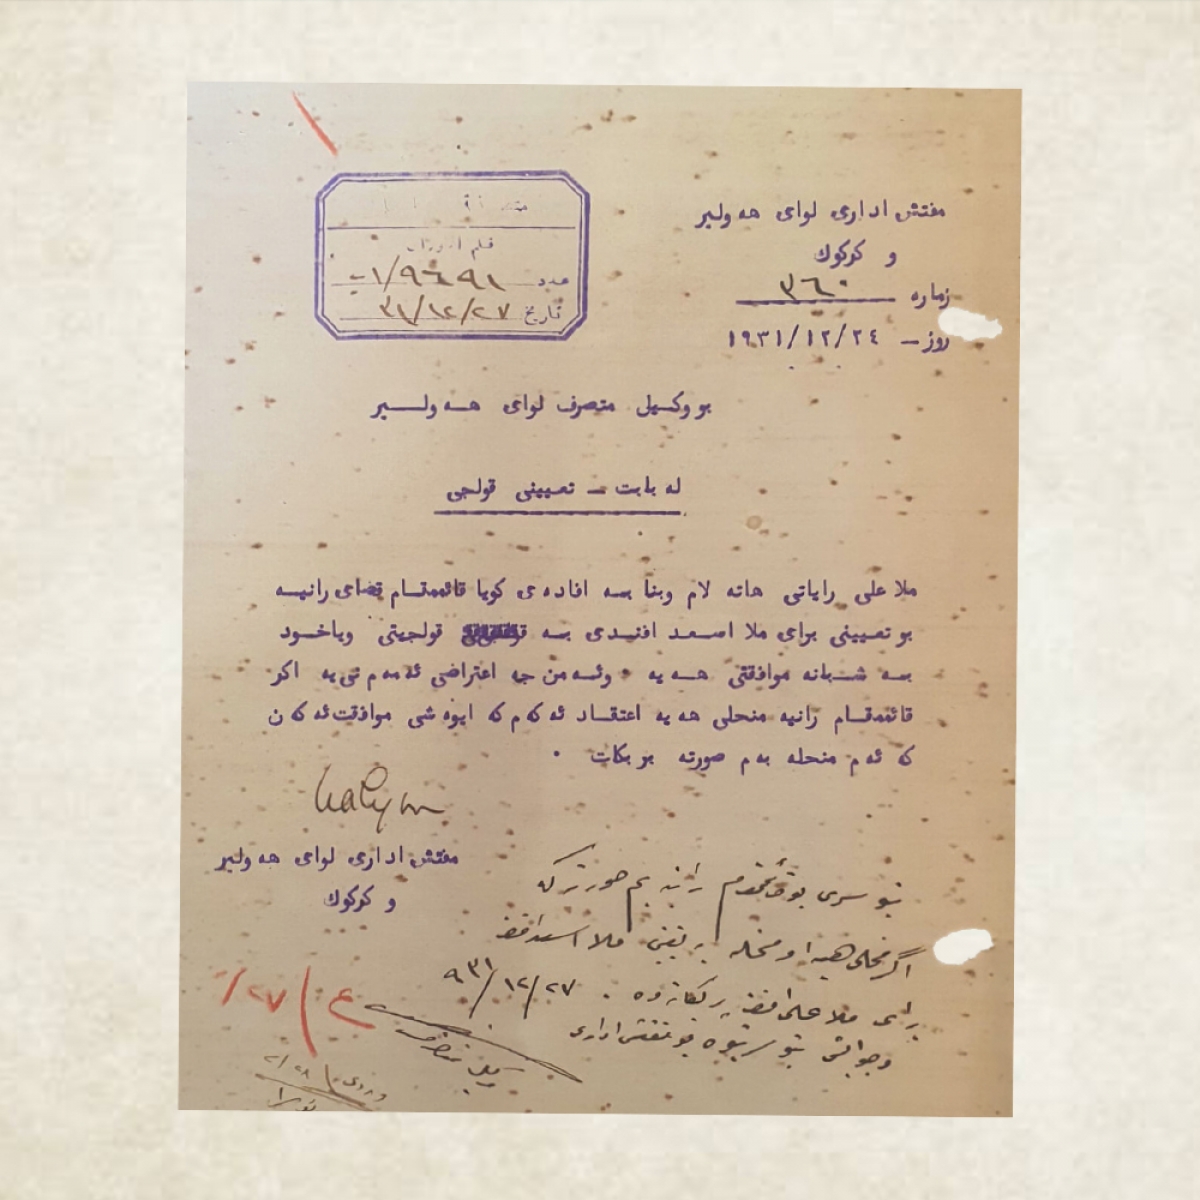 مفتش اداری لوای هه ولیر
و کرکوك
ژماره ٣٦٠
روژ ــ ١٩٣١/١٢/٢٤
قلم
عدد ٩٦٩١/١
تاریخ ٣١/١٢/٢٧
بو وکیلی متصرف لوای هه ولیر
له بابت ــ تعیینی قولجی
ملا علی رایاتی هاته لام وبنا به افاده ی کویا قائممقام قضای رانیه
بو تعیینی برای ملا اسعد افندی به قولجیتی ویاخود
به شبانه موافقتی هه یه ٠ وئه من چه اعتراضی ئه مه م نی یه اکر
قائممقام رانیه منحلی هه یه اعتقاد ئه که م که ایوه شی موافقت ئه که ن
که ئه م منحله به م صورته پر بکات ٠
مفتش اداری لوای هه ولیر
و کرکوك
بنو سری بو قائمقام رانیه بم صورته که
اگر منحلی هیه او منحله به تعیینی ملا اسعد افند
برای ملا علی افند پر بکاته وه .
٩٣١/١٢/٢٧
و جوابی بنو سریوه بو مفتش اداری
وکیل متصرف
ع / ٢٧/